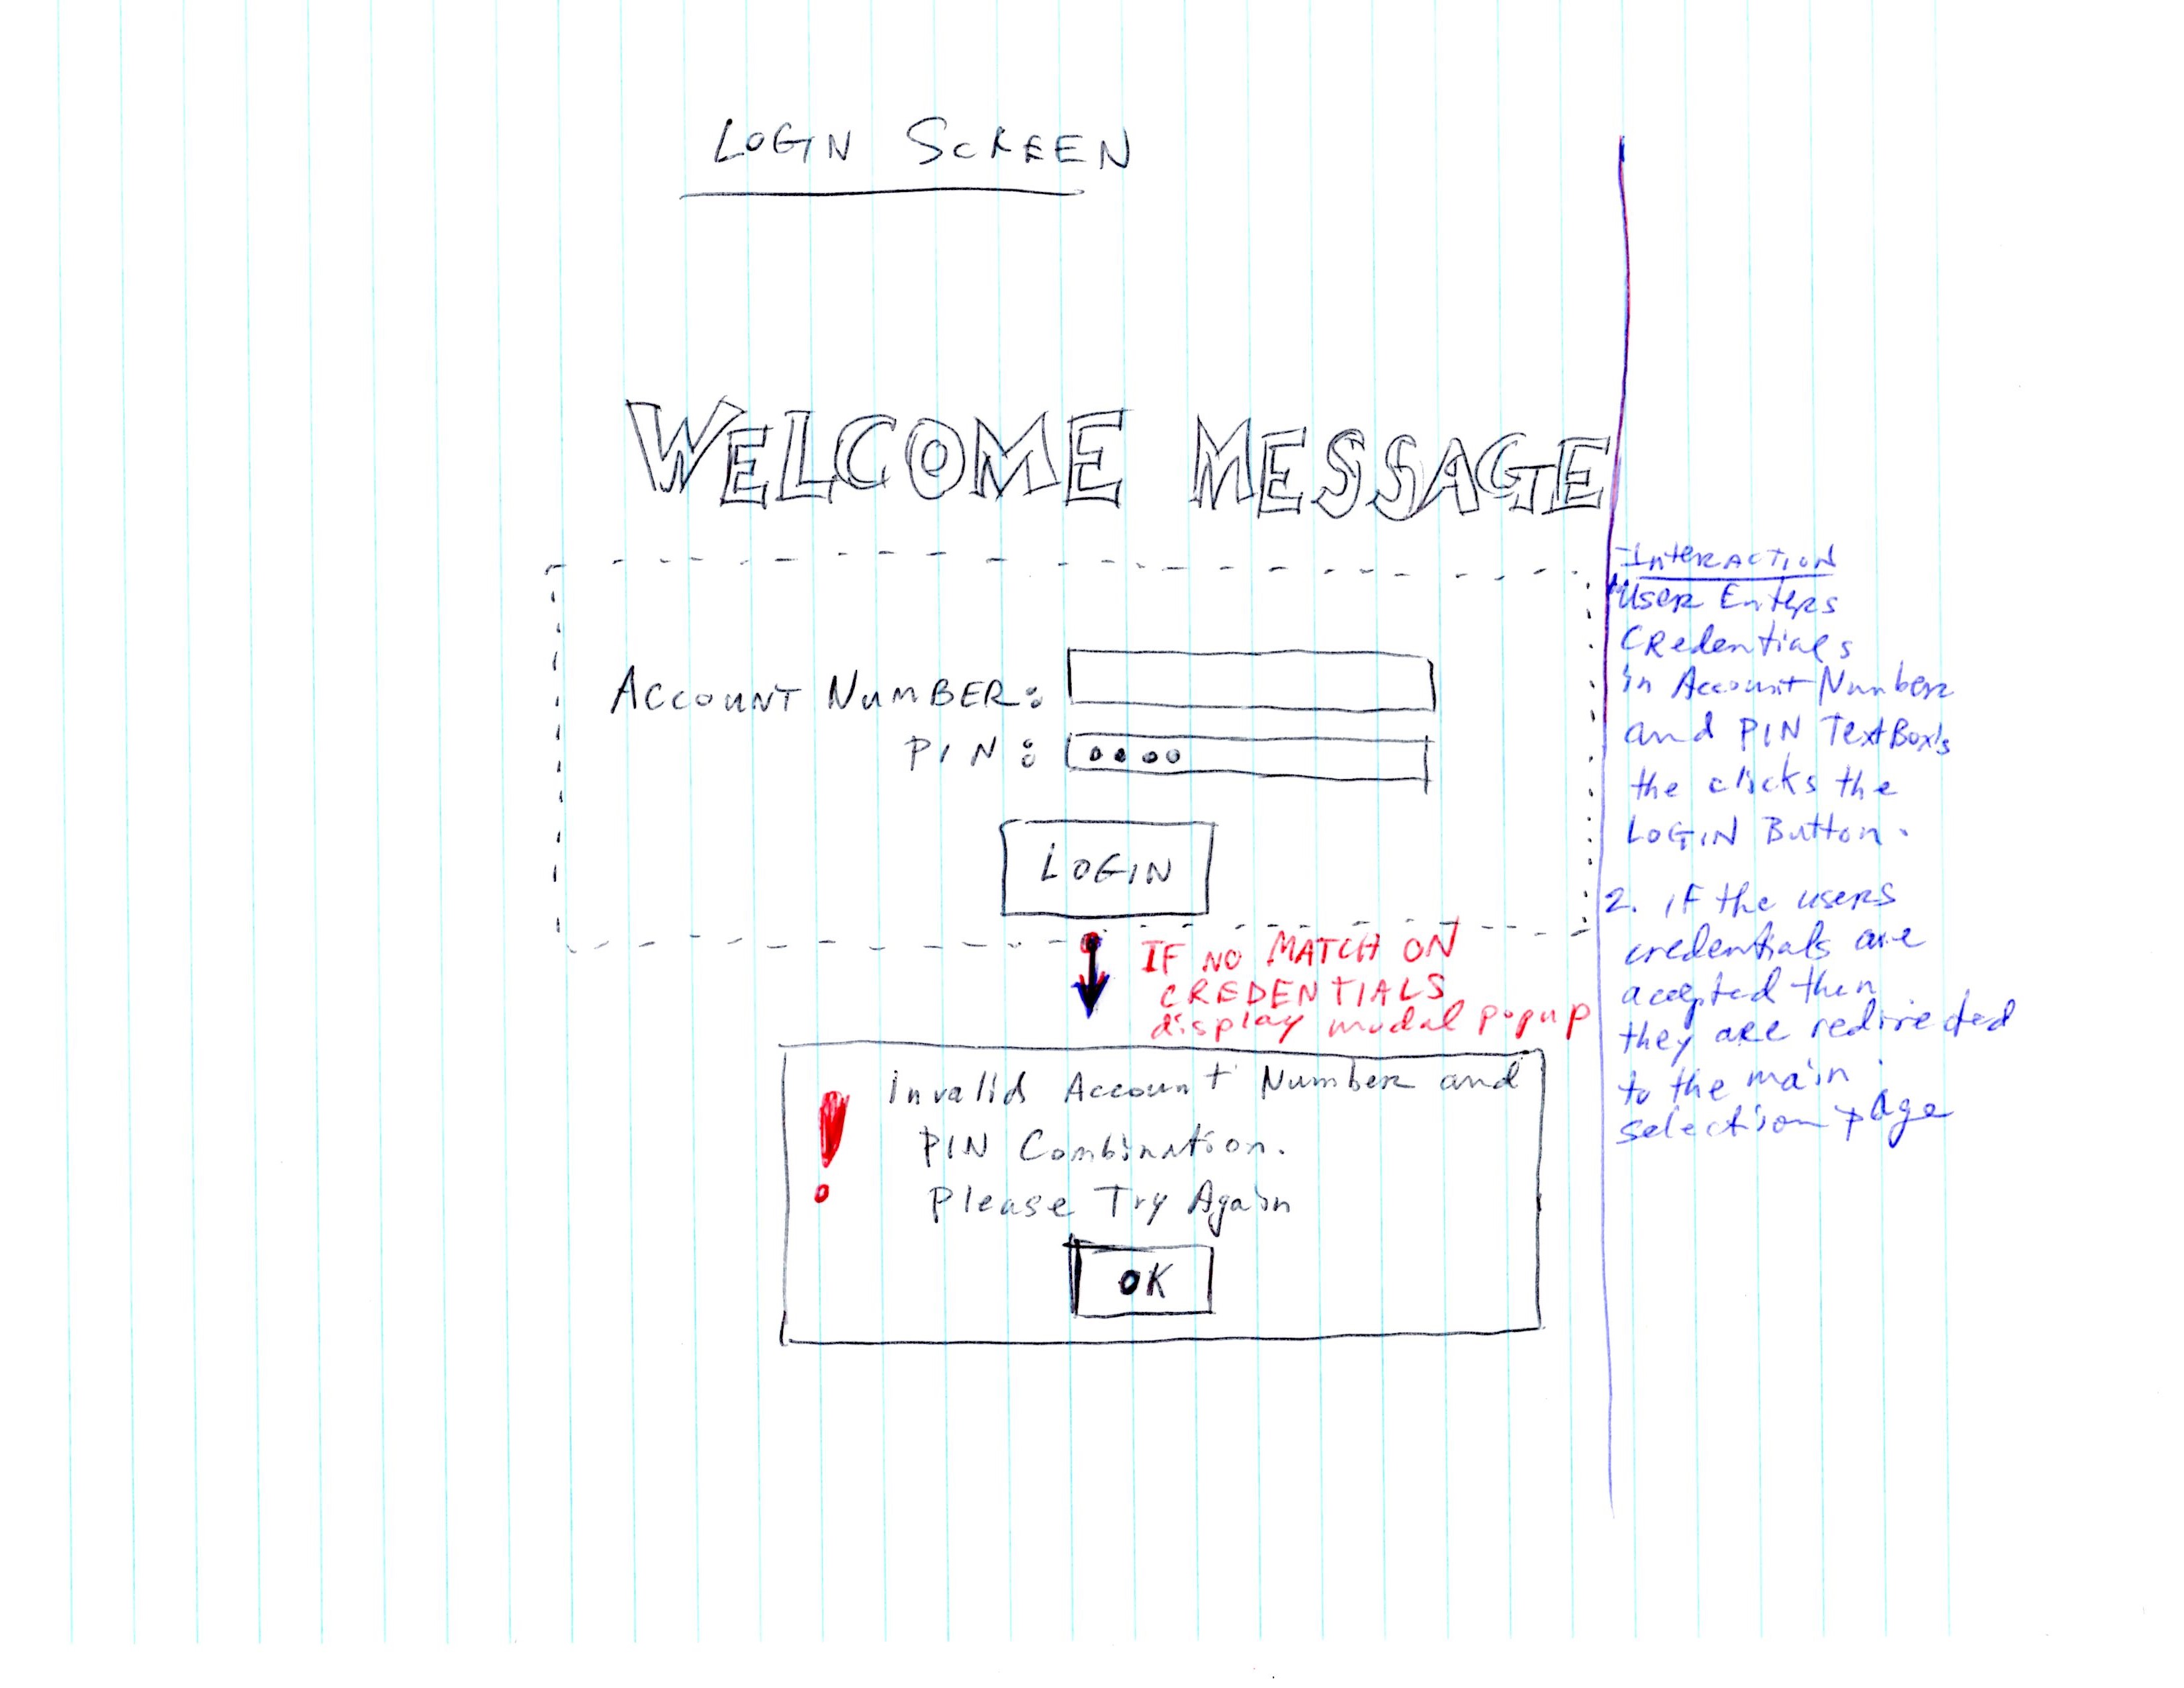 LOGIN SCREEN
WELCOME MESSAGE
ACCOUNT NUMBER:
PIN:
LOGIN
IF NO MATCH ON
CREDENTIALS
display modal popup
! Invalid Account Number and
PIN Combination.
Please Try Again
OK
Interaction
User Enters
Credentials
in Account Number
and PIN TextBox's
the clicks the
LOGIN Button.
2. if the users
credentials are
accepted then
they are redirected
to the main
selection page